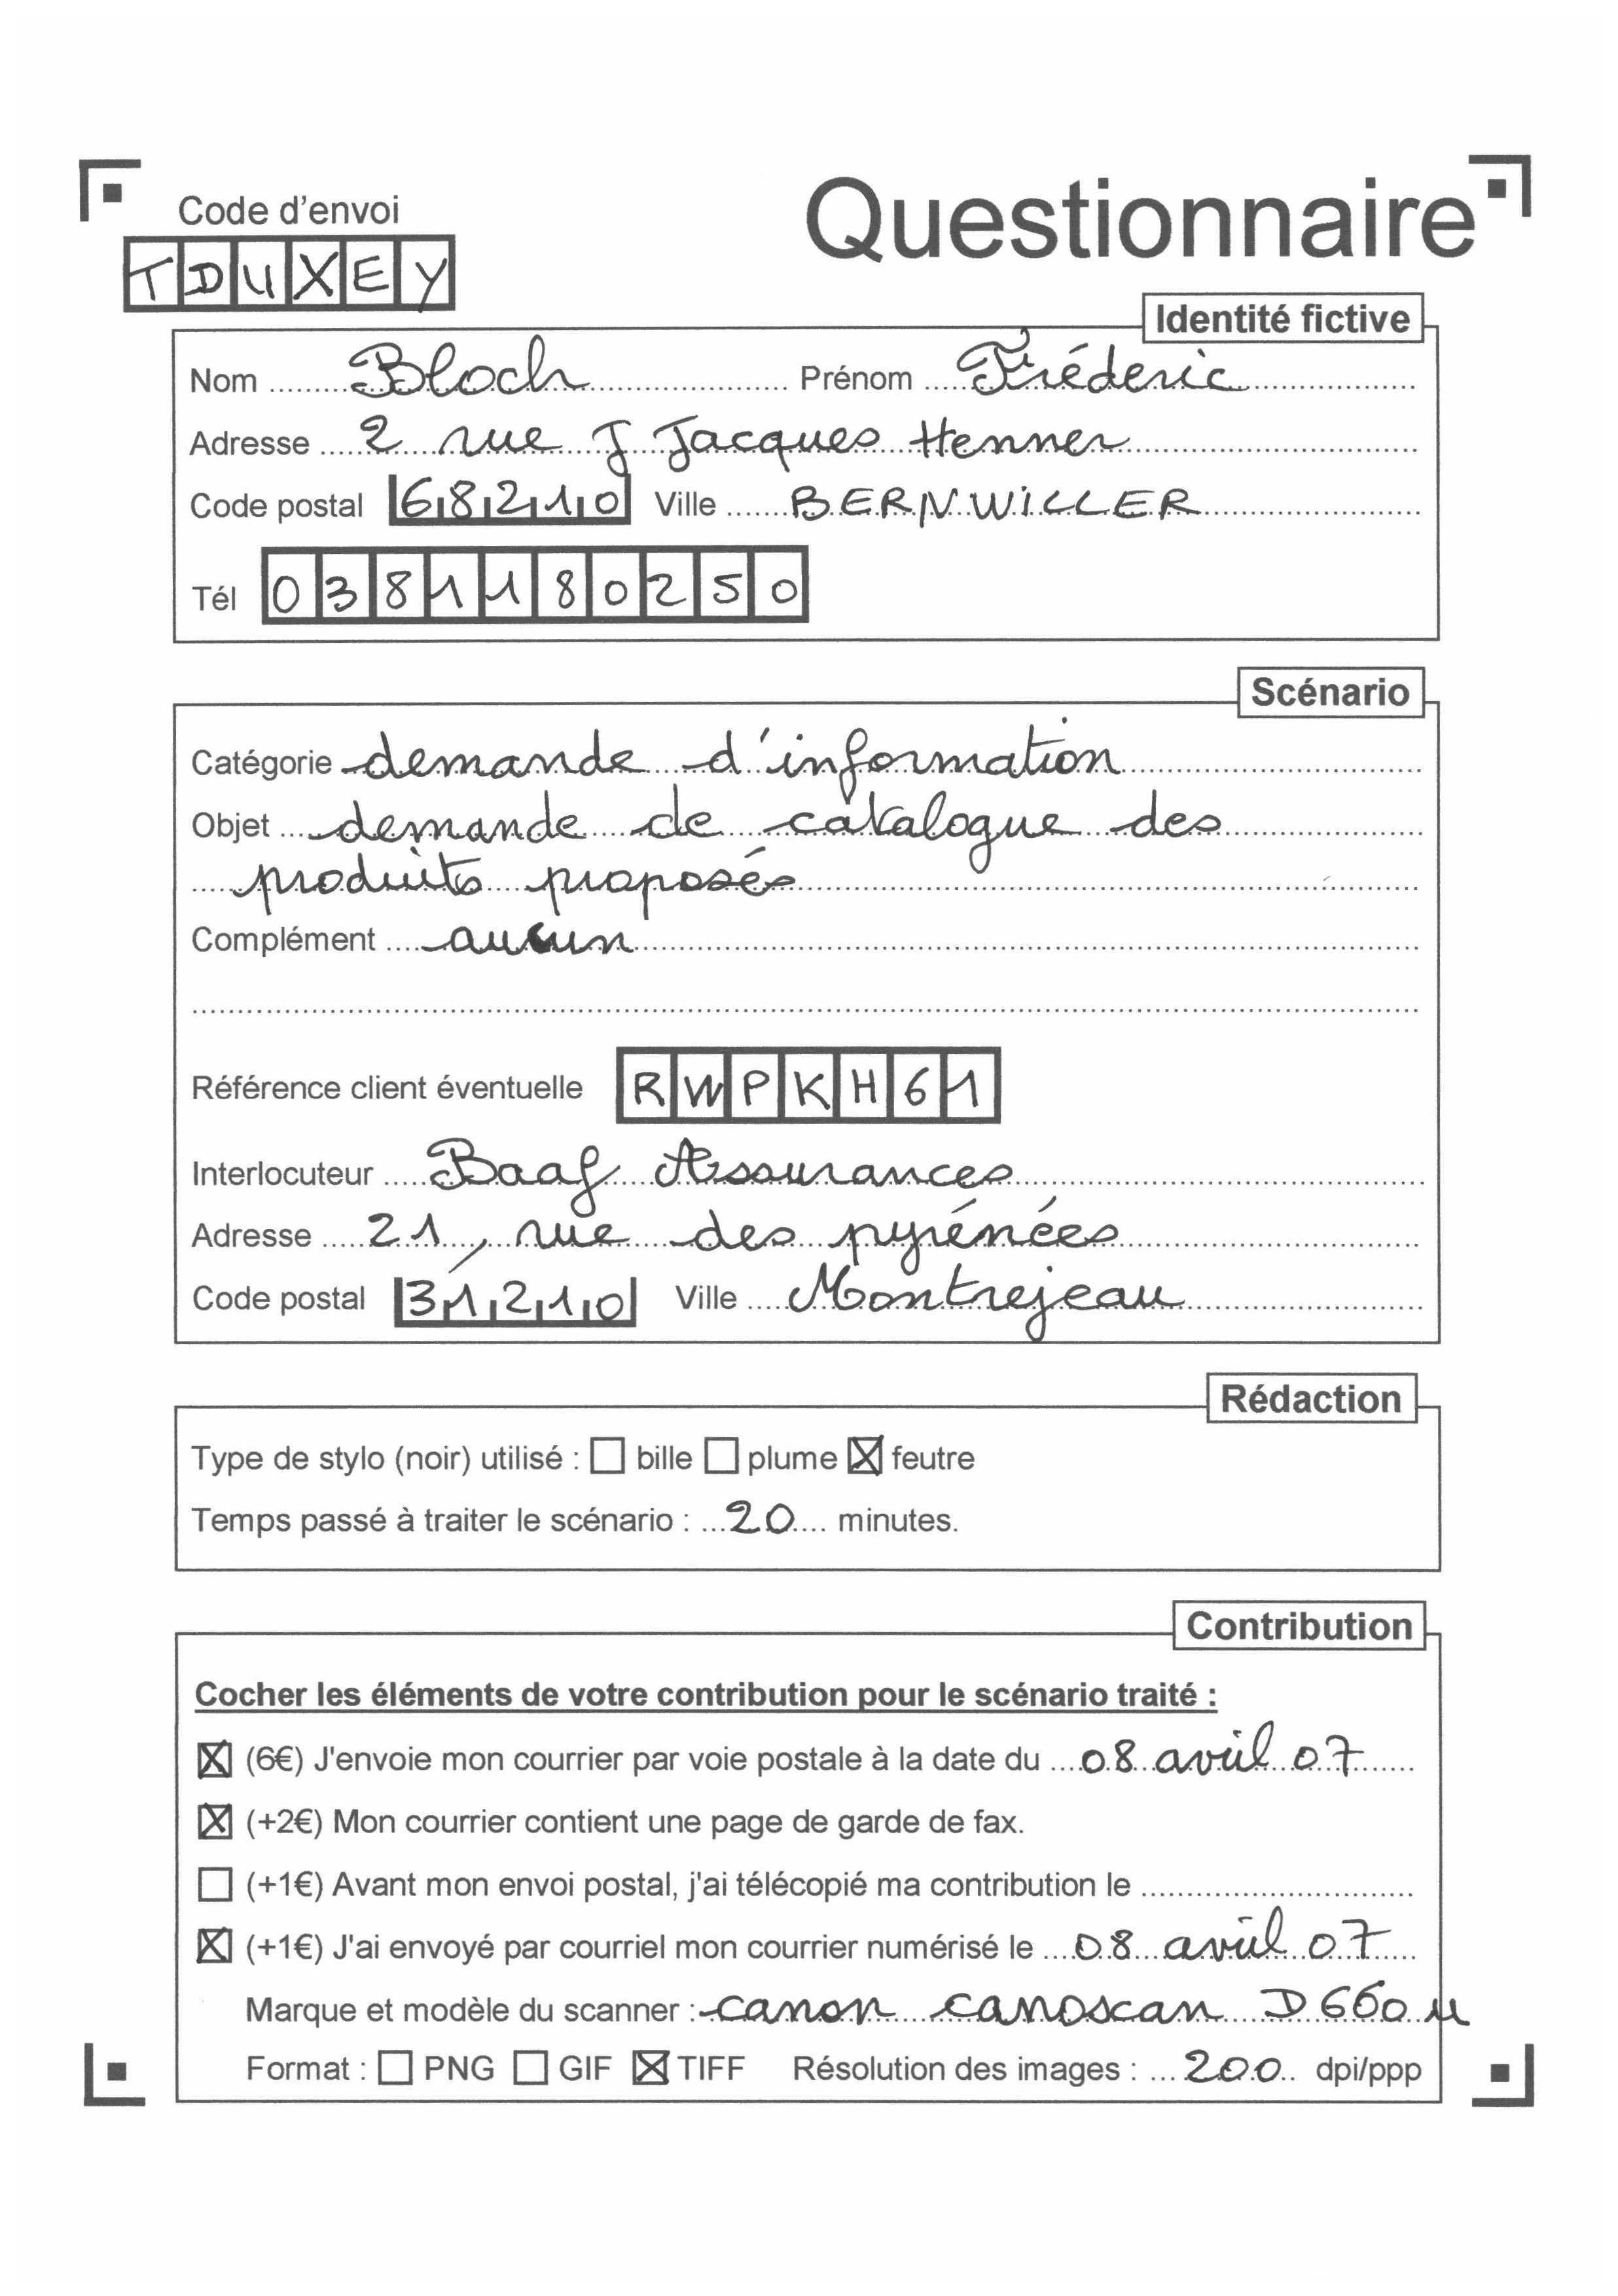 Code d'envoi
Questionnaire
TDUXEY
Identité fictive
Nom Bloch Prénom Fréderic
Adresse 2 rue J Jacques Henner
Code postal 68210 Ville BERNWiLLER
Tél 0381180250
Scénario
Catégorie demande d'information
Objet demande de catalogue des
produits proposés
Complément aucun
Référence client éventuelle RWPKH61
Interlocuteur Baaf Assurances
Adresse 21, rue des pyrénées
Code postal 31210 Ville Montrejeau
Rédaction
Type de stylo (noir) utilisé : ☐ bille ☐ plume ☒ feutre
Temps passé à traiter le scénario : 20 minutes.
Contribution
Cocher les éléments de votre contribution pour le scénario traité :
☒ (6€) J'envoie mon courrier par voie postale à la date du 08 avril 07
☒ (+2€) Mon courrier contient une page de garde de fax.
☐ (+1€) Avant mon envoi postal, j'ai télécopié ma contribution le
☒ (+1€) J'ai envoyé par courriel mon courrier numérisé le 08 avril 07
Marque et modèle du scanner : canon canoscan D660 u
Format : ☐ PNG ☐ GIF ☒ TIFF Résolution des images : 200 dpi/ppp